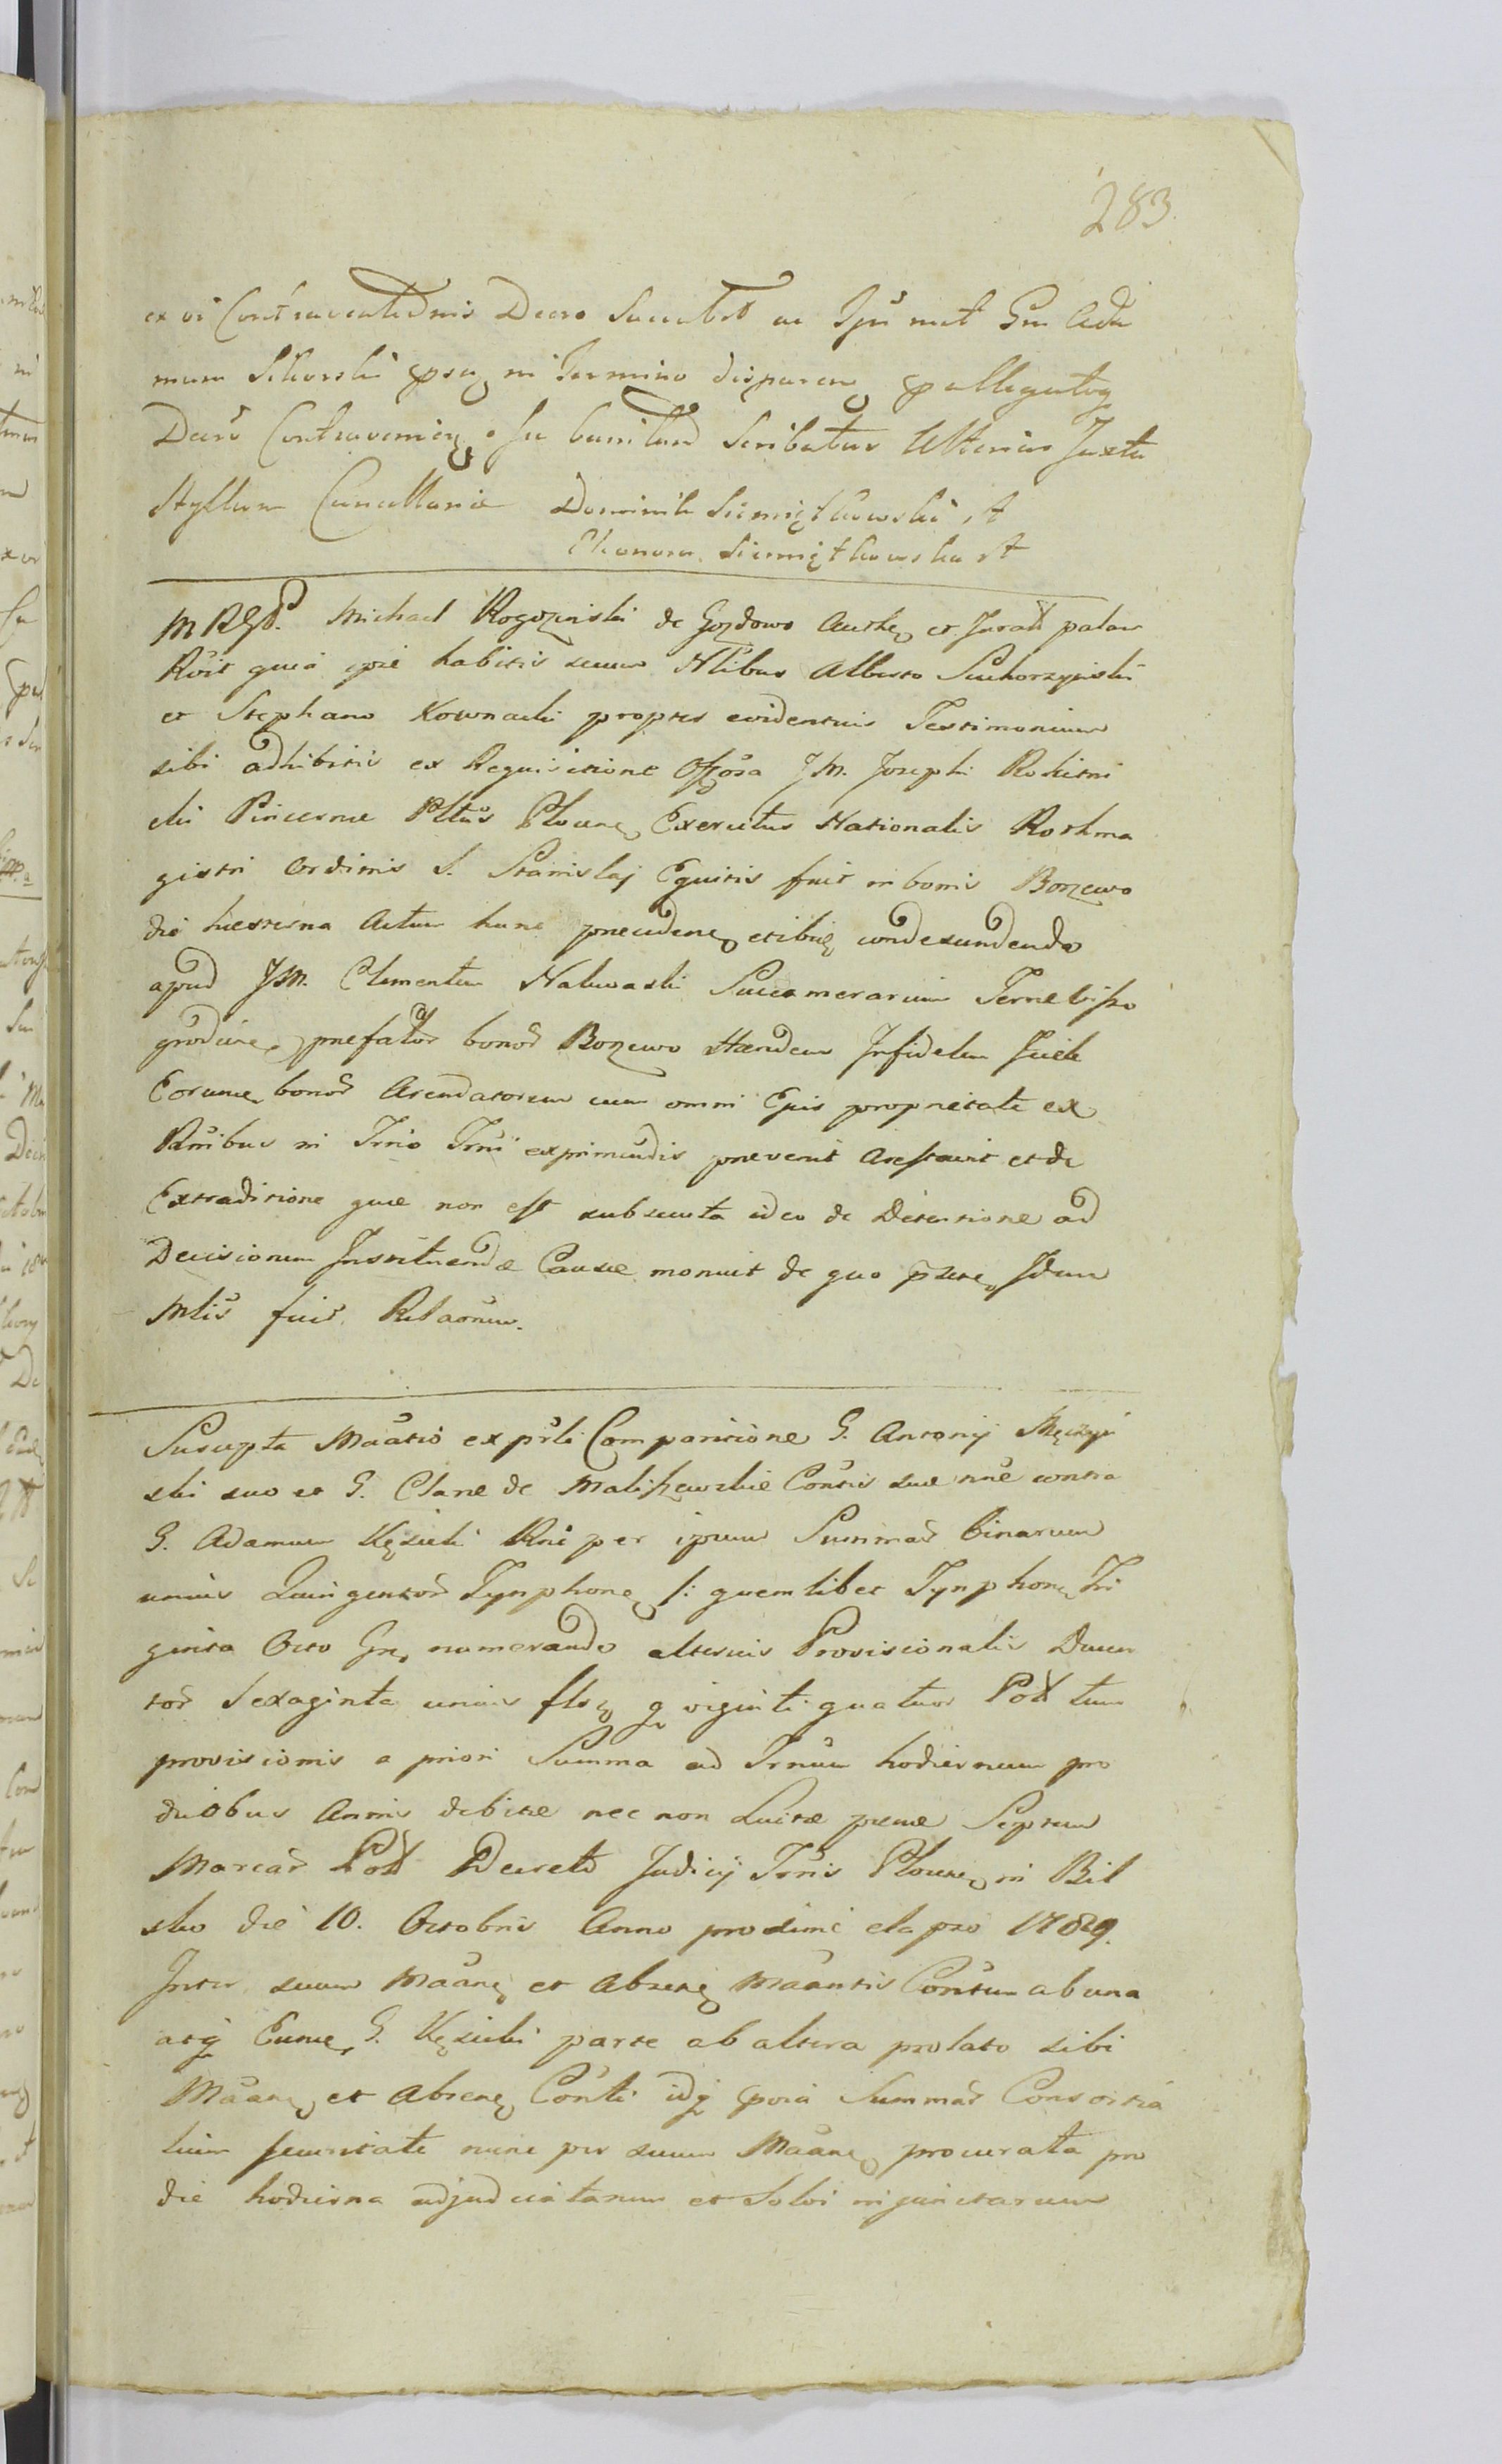 283
ex vi Contraventionis Decro Succubt ac Ipũ met Gm Ada
mum Sikorski in Termino disparen pallegatoq
Decrõ Contravenien Scribatur Ulterius Juxta
Styllum Cancellariæ Dominik Siemiętkowski
Eleonora Siemiętkowska
MRGP. Michael Rogozinski de Gozdowo Authen et Juratt palam
Rõit quia ipse habitis secum Nlibus Alberto Suchorzynski
et Stephano Kownacki propter evidentius Testimonium
sibi adhibitis ex Requisitione Offõsa JM. Josephi Rokitni
cki Pincernæ Pltũs Plocen Exercitus Nationalis Rothma
gistri Ordinis S. Stanislaj Equitis fuit in bonis Borzewo
die hesterna Actum hunc præcedene etibiq condescendendo
apud JM. Clementem Nakwaski Succamerarium Terrebisso
grodiens præfator bonor Borzewo Hæredem Infidelem
Eorumq bonor Arendatorem cum omni Ejus proprietate ex
Rnibus in Trnio Trnii exprimendis prevenit Arestavit et de
Extraditione quæ non est subsecuta ideo de Detentione ad
Decisionem Instituendæ Causæ monuit de quo Idem
Mlis fecit Relaõnem.
Suscepta Maãtio ex prsli Comparitione G. Antonij Męczyń
ski suo et G. Claræ de Maliszewskie Contis suæ nnẽ contra
G. Adamum Kęsicki Rnẽ per ipsum Summar binarum
unius Quingentor Tynphone /: quemlibet Tynphone Tri
ginta Octo Gr, numerando alterius Provisionalis Ducen
tor Sexaginta unius flor gr viginti quatuor Pott tum
provisionis a priori Summa ad Trnum hodiernum pro
duobus Annis debitæ nec non Luitæ pænæ Septem
Marcar Pott Decreto Judicij Trris Plocen in Biel
sko die 10. Octobris Anno proxime elapso 1789.
Inter suum Maãne et Absene Maãntis Contem ab una
atq Eume G. Kęsicki parte ab altera prolato sibi
Maãne et Absene Conti idq Summar Consortia
lium securitate nunc per suum Maãne procurata pro
die hodierna adjudicatarum et Solvi injunctarum